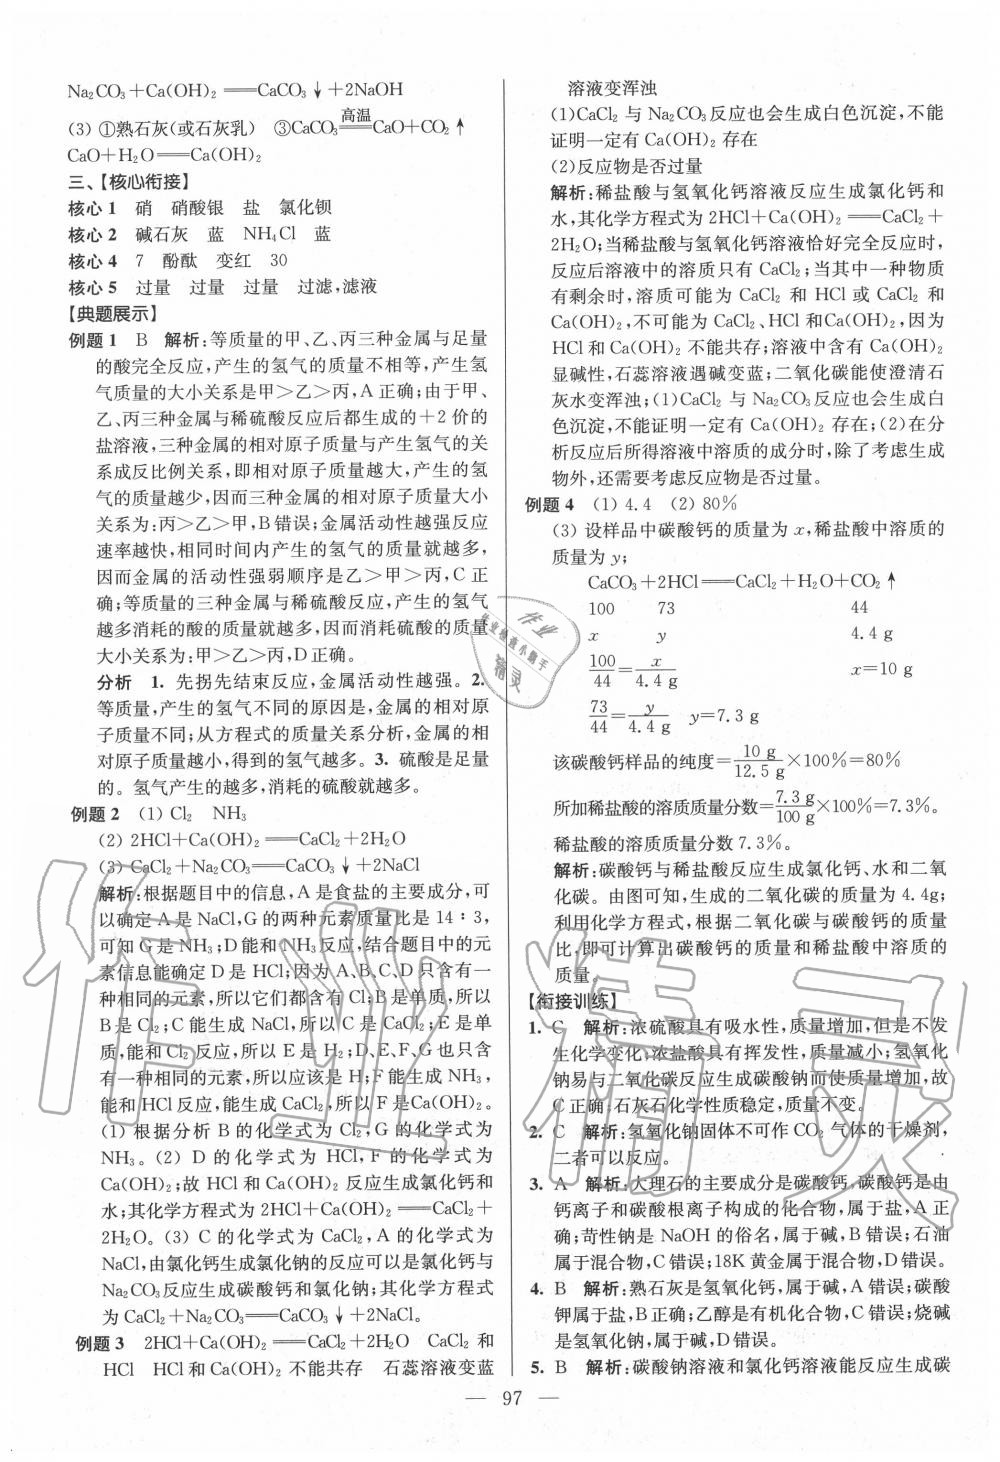 Na₂CO₃+Ca(OH)₂══CaCO₃↓+2NaOH
(3) ①熟石灰(或石灰乳) ③CaCO₃══高温══CaO+CO₂↑
CaO+H₂O══Ca(OH)₂
三、【核心衔接】
核心1 硝 硝酸银 盐 氯化钡
核心2 碱石灰 蓝 NH₄Cl 蓝
核心4 7 酚酞 变红 30
核心5 过量 过量 过量 过滤,滤液
【典题展示】
例题1 B 解析:等质量的甲、乙、丙三种金属与足量
的酸完全反应,产生的氢气的质量不相等,产生氢
气质量的大小关系是甲＞乙＞丙,A正确;由于甲、
乙、丙三种金属与稀硫酸反应后都生成的+2价的
盐溶液,三种金属的相对原子质量与产生氢气的关
系成反比例关系,即相对原子质量越大,产生的氢
气的质量越少,因而三种金属的相对原子质量大小
关系为:丙＞乙＞甲,B错误;金属活动性越强反应
速率越快,相同时间内产生的氢气的质量就越多,
因而金属的活动性强弱顺序是乙＞甲＞丙,C正
确;等质量的三种金属与稀硫酸反应,产生的氢气
越多消耗的酸的质量就越多,因而消耗硫酸的质量
大小关系为:甲＞乙＞丙,D正确。
分析 1. 先拐先结束反应,金属活动性越强。2.
等质量,产生的氢气不同的原因是,金属的相对原
子质量不同;从方程式的质量关系分析,金属的相
对原子质量越小,得到的氢气越多。3. 硫酸是足量
的。氢气产生的越多,消耗的硫酸就越多。
例题2 (1) Cl₂ NH₃
(2) 2HCl+Ca(OH)₂══CaCl₂+2H₂O
(3) CaCl₂+Na₂CO₃══CaCO₃↓+2NaCl
解析:根据题目中的信息,A是食盐的主要成分,可
以确定A是NaCl,G的两种元素质量比是14∶3,
可知G是NH₃;D能和NH₃反应,结合题目中的元
素信息能确定D是HCl;因为A、B、C、D只含有一
种相同的元素,所以它们都含有Cl;B是单质,所以
B是Cl₂;C能生成NaCl,所以C是CaCl₂;E是单
质,能和Cl₂反应,所以E是H₂;D、E、F、G也只含
有一种相同的元素,所以应该是H;F能生成NH₃,
能和HCl反应,能生成CaCl₂,所以F是Ca(OH)₂。
(1) 根据分析B的化学式为Cl₂,G的化学式为
NH₃。(2) D的化学式为HCl,F的化学式为
Ca(OH)₂;故HCl和Ca(OH)₂反应生成氯化钙和
水;其化学方程式为2HCl+Ca(OH)₂══CaCl₂+
2H₂O。(3) C的化学式为CaCl₂,A的化学式为
NaCl,由氯化钙生成氯化钠的反应可以是氯化钙与
Na₂CO₃反应生成碳酸钙和氯化钠;其化学方程式
为CaCl₂+Na₂CO₃══CaCO₃↓+2NaCl。
例题3 2HCl+Ca(OH)₂══CaCl₂+2H₂O CaCl₂和
HCl HCl和Ca(OH)₂不能共存 石蕊溶液变蓝
溶液变浑浊
(1)CaCl₂与Na₂CO₃反应也会生成白色沉淀,不能
证明一定有Ca(OH)₂存在
(2)反应物是否过量
解析:稀盐酸与氢氧化钙溶液反应生成氯化钙和
水,其化学方程式为2HCl+Ca(OH)₂══CaCl₂+
2H₂O;当稀盐酸与氢氧化钙溶液恰好完全反应时,
反应后溶液中的溶质只有CaCl₂;当其中一种物质
有剩余时,溶质可能为CaCl₂和HCl或CaCl₂和
Ca(OH)₂,不可能为CaCl₂、HCl和Ca(OH)₂,因为
HCl和Ca(OH)₂不能共存;溶液中含有Ca(OH)₂
显碱性,石蕊溶液遇碱变蓝;二氧化碳能使澄清石
灰水变浑浊;(1)CaCl₂与Na₂CO₃反应也会生成白
色沉淀,不能证明一定有Ca(OH)₂存在;(2)在分
析反应后所得溶液中溶质的成分时,除了考虑生成
物外,还需要考虑反应物是否过量。
例题4 (1) 4.4 (2) 80%
(3) 设样品中碳酸钙的质量为x,稀盐酸中溶质的
质量为y;
CaCO₃+2HCl══CaCl₂+H₂O+CO₂↑
100 73 44
x y 4.4 g
100/44=x/4.4 g x=10 g
73/44=y/4.4 g y=7.3 g
该碳酸钙样品的纯度=10 g/12.5 g×100%=80%
所加稀盐酸的溶质质量分数=7.3 g/100 g×100%=7.3%。
稀盐酸的溶质质量分数7.3%。
解析:碳酸钙与稀盐酸反应生成氯化钙、水和二氧
化碳。由图可知,生成的二氧化碳的质量为4.4g;
利用化学方程式,根据二氧化碳与碳酸钙的质量
比,即可计算出碳酸钙的质量和稀盐酸中溶质的
质量
【衔接训练】
1. C 解析:浓硫酸具有吸水性,质量增加,但是不发
生化学变化;浓盐酸具有挥发性,质量减小;氢氧化
钠易与二氧化碳反应生成碳酸钠而使质量增加,故
C正确;石灰石化学性质稳定,质量不变。
2. C 解析:氢氧化钠固体不可作CO₂气体的干燥剂,
二者可以反应。
3. A 解析:大理石的主要成分是碳酸钙,碳酸钙是由
钙离子和碳酸根离子构成的化合物,属于盐,A正
确;苛性钠是NaOH的俗名,属于碱,B错误;石油
属于混合物,C错误;18K黄金属于混合物,D错误。
4. B 解析:熟石灰是氢氧化钙,属于碱,A错误;碳酸
钾属于盐,B正确;乙醇是有机化合物,C错误;烧碱
是氢氧化钠,属于碱,D错误。
5. B 解析:碳酸钠溶液和氯化钙溶液能反应生成碳
— 97 —
作业精灵
作业
作业检查小助手
精灵